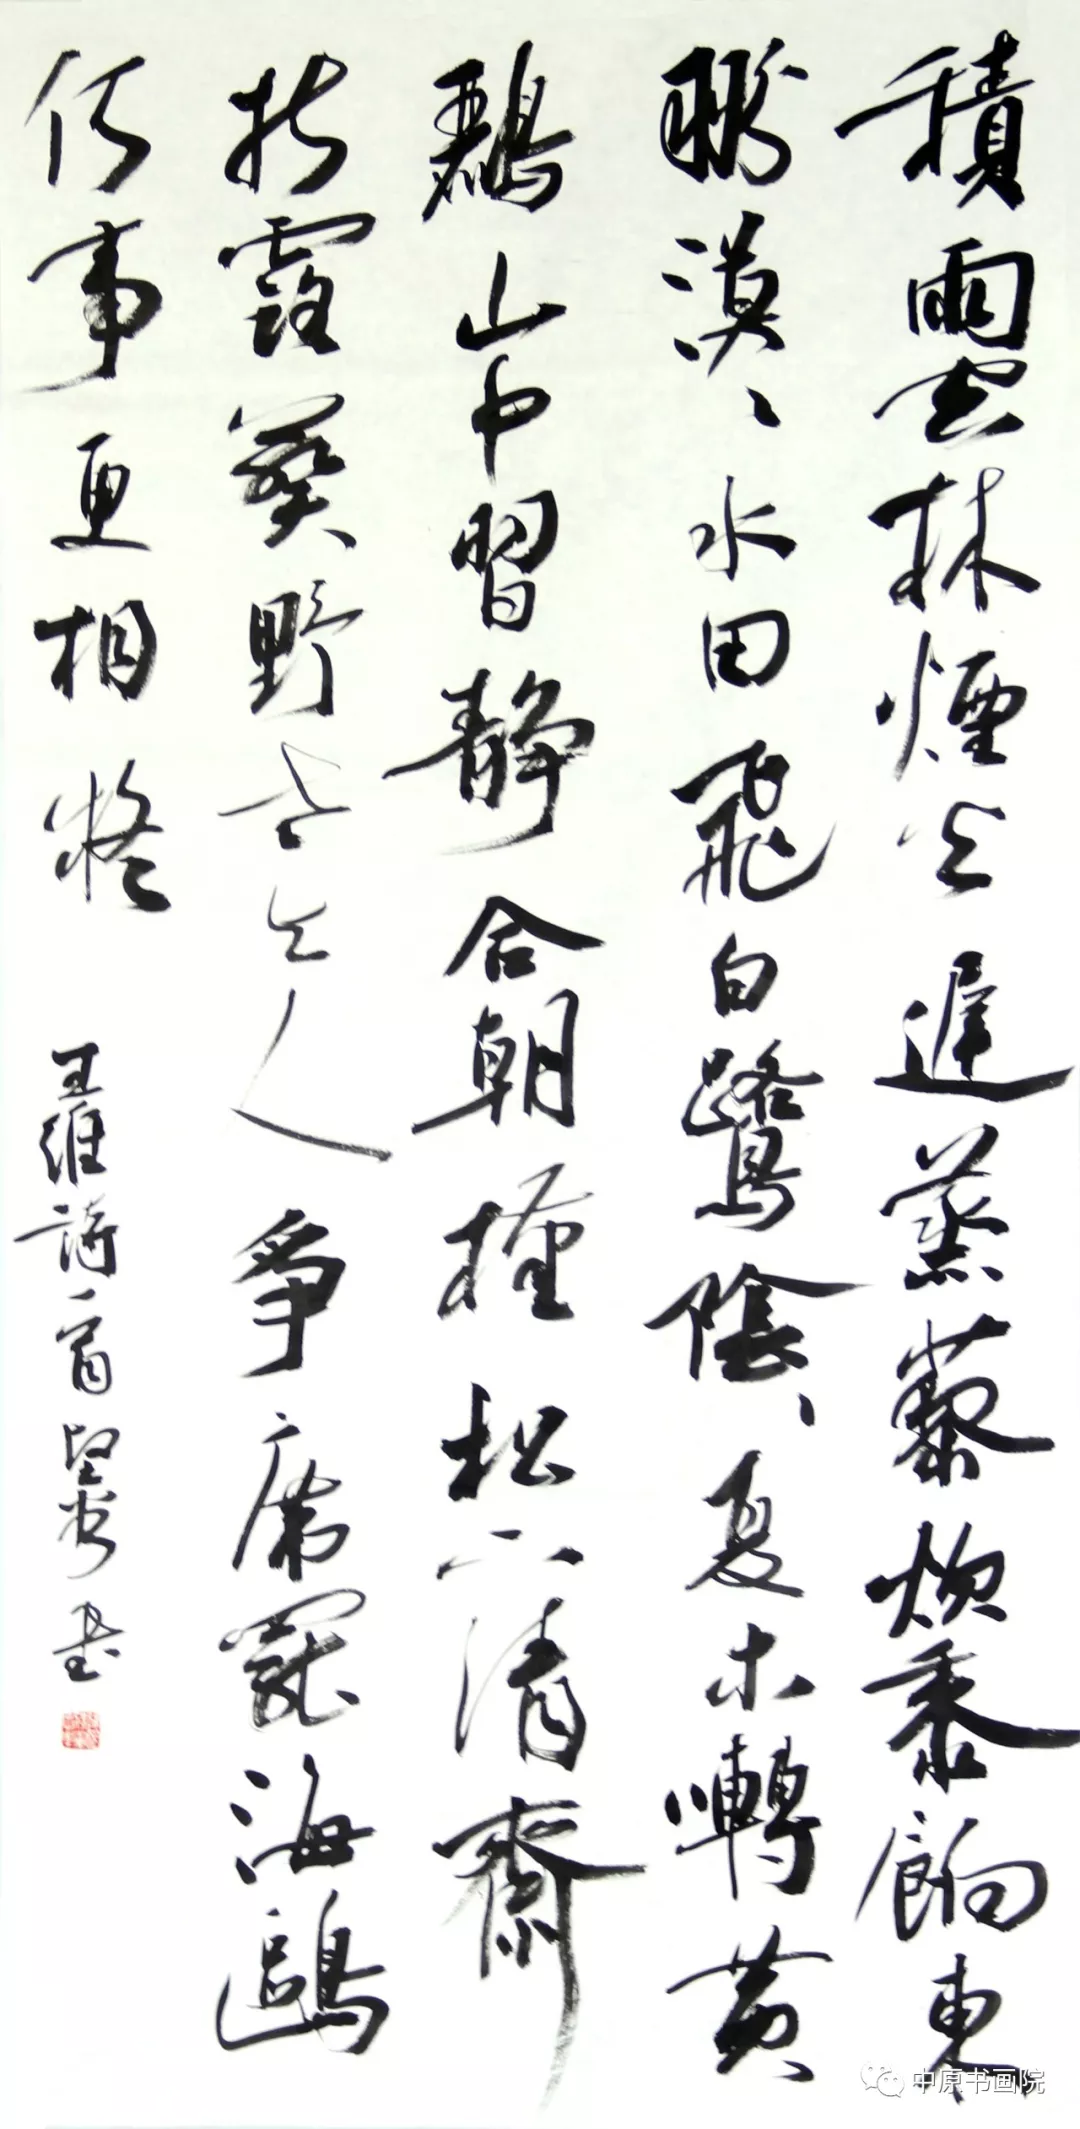 積雨空林煙火遲蒸藜炊黍餉東
漠〻水田飛白鷺陰〻夏木囀黃
鸝山中習靜合朝槿松下清齋
折露葵野老与人爭席罷海鷗
何事更相疑
王維詩一首 書
中原书画院